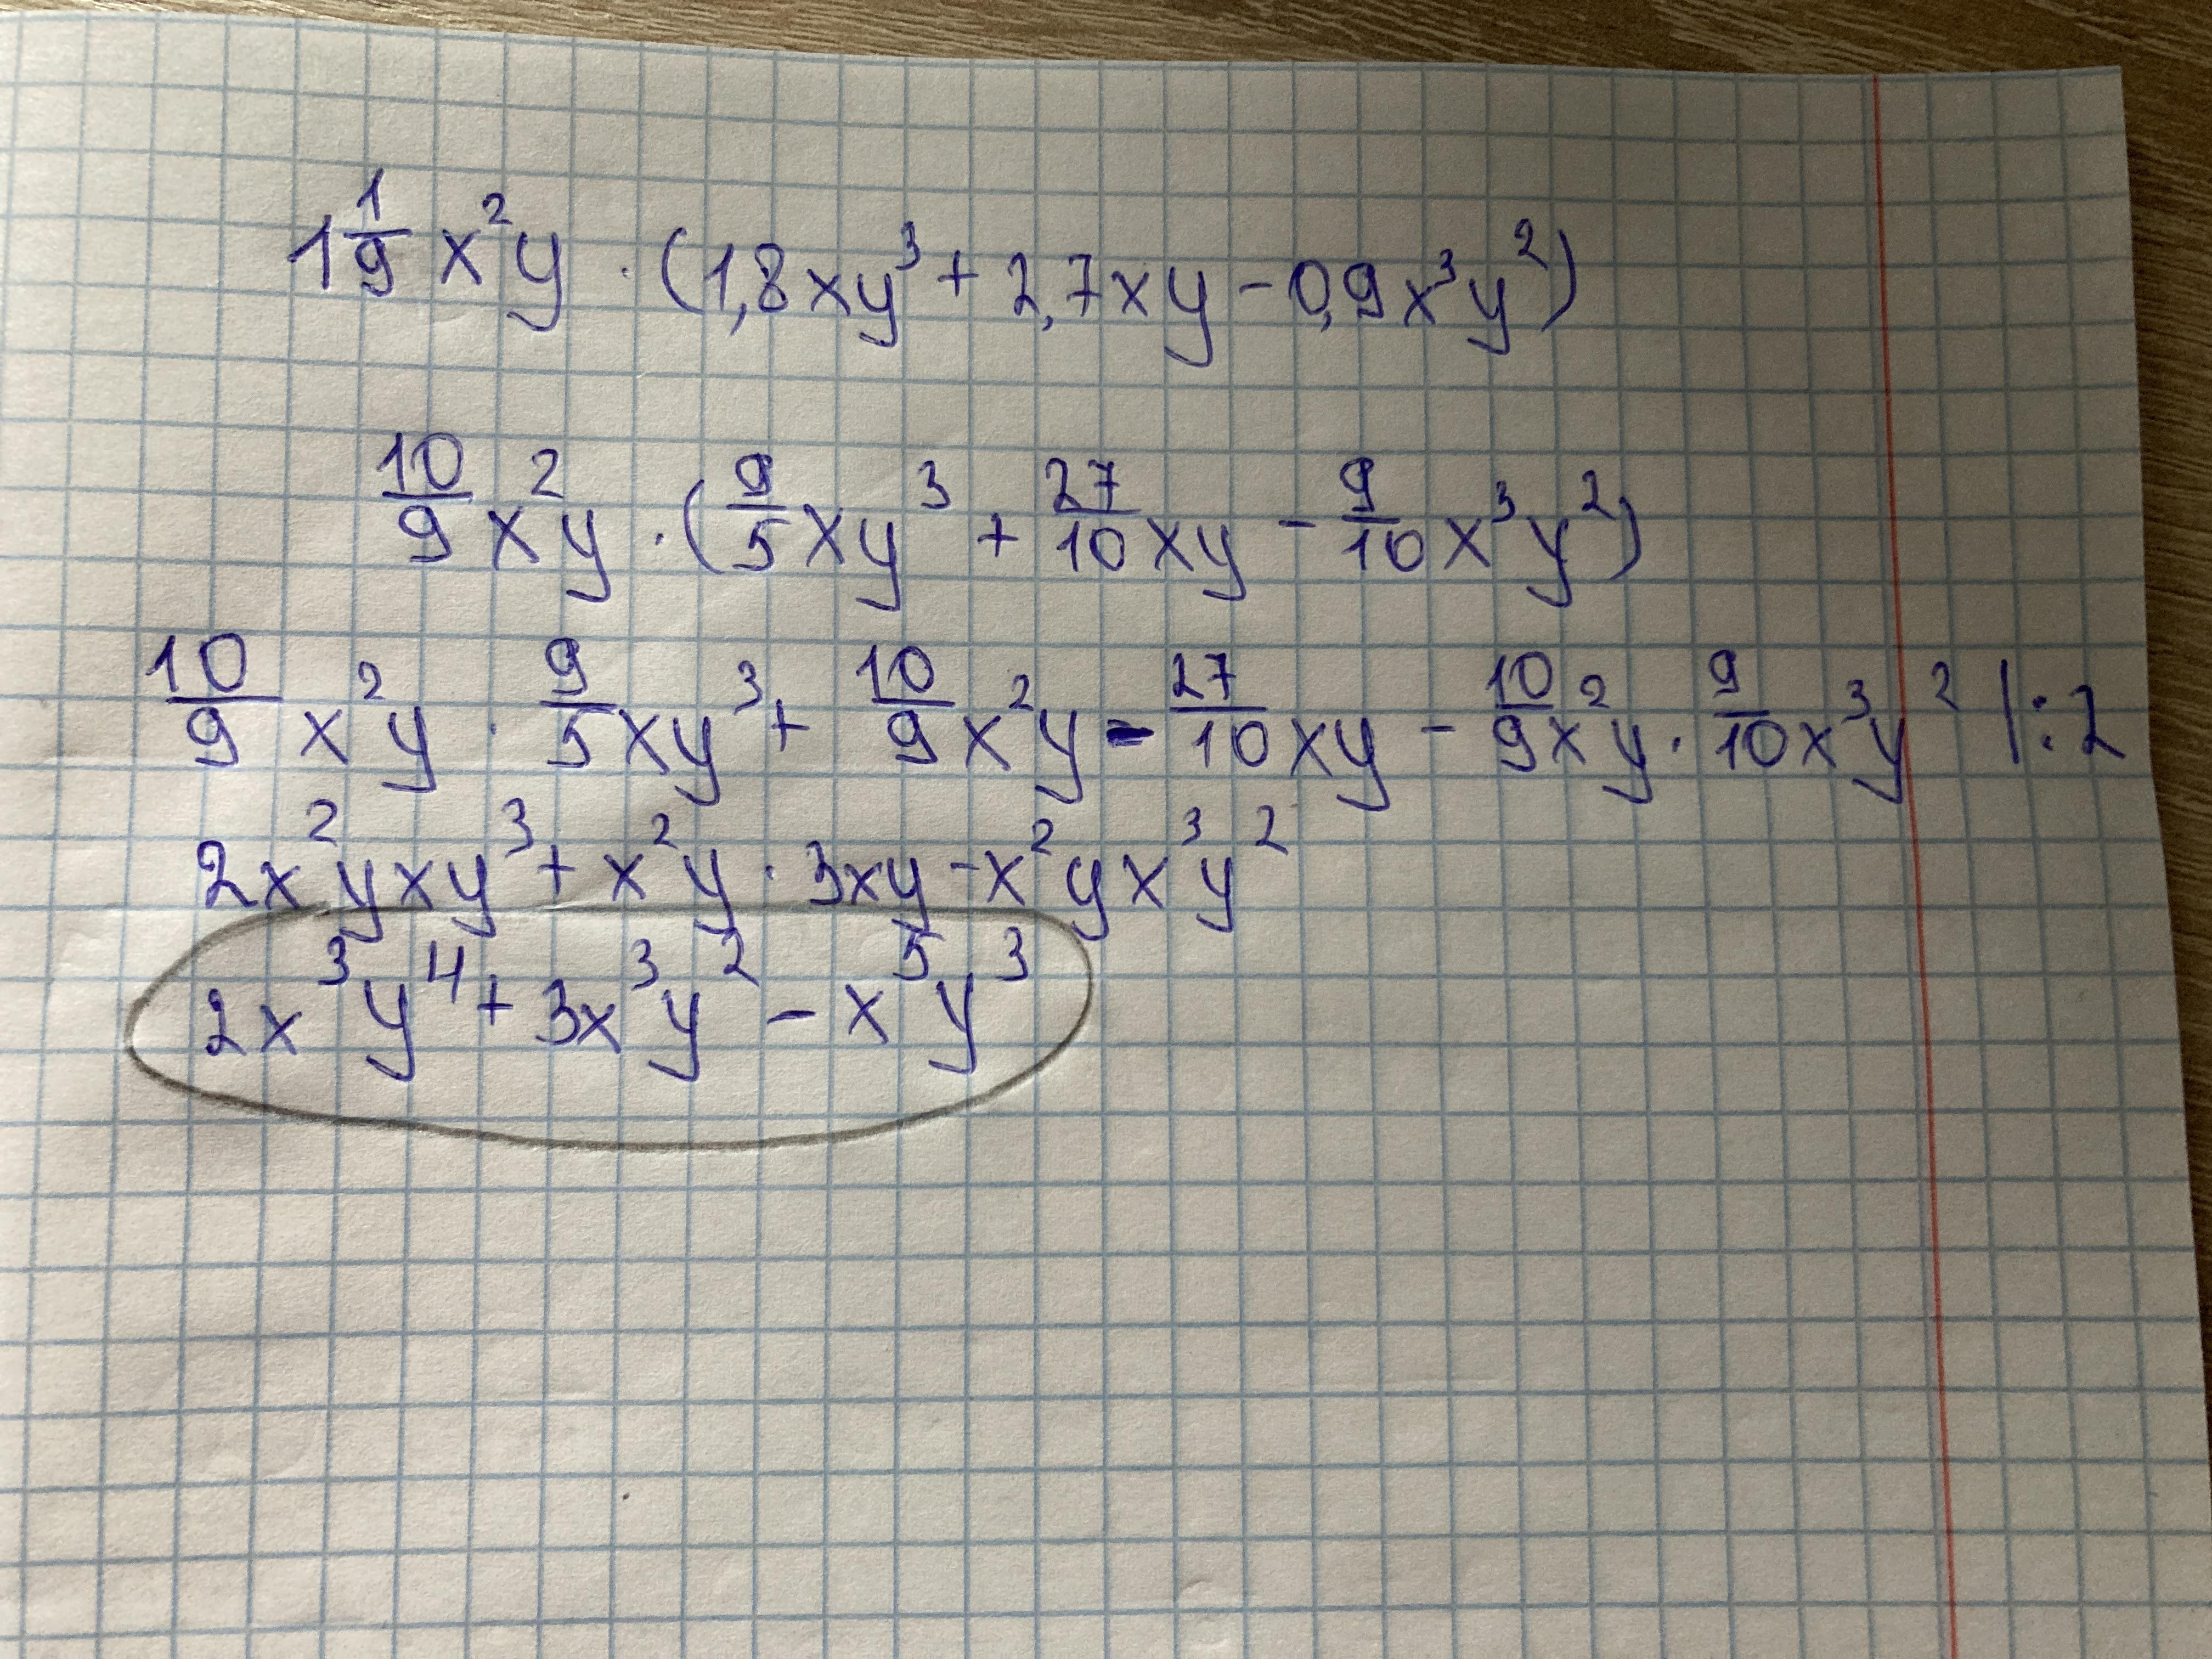 1 1/9 x²y · (1,8xy³ + 2,7xy - 0,9x³y²)
10/9 x²y · (9/5 xy³ + 27/10 xy - 9/10 x³y²)
10/9 x²y · 9/5 xy³ + 10/9 x²y - 27/10 xy - 10/9 x²y · 9/10 x³y² |:2
2x²yxy³ + x²y · 3xy - x²yx³y²
2x³y⁴ + 3x³y² - x⁵y³